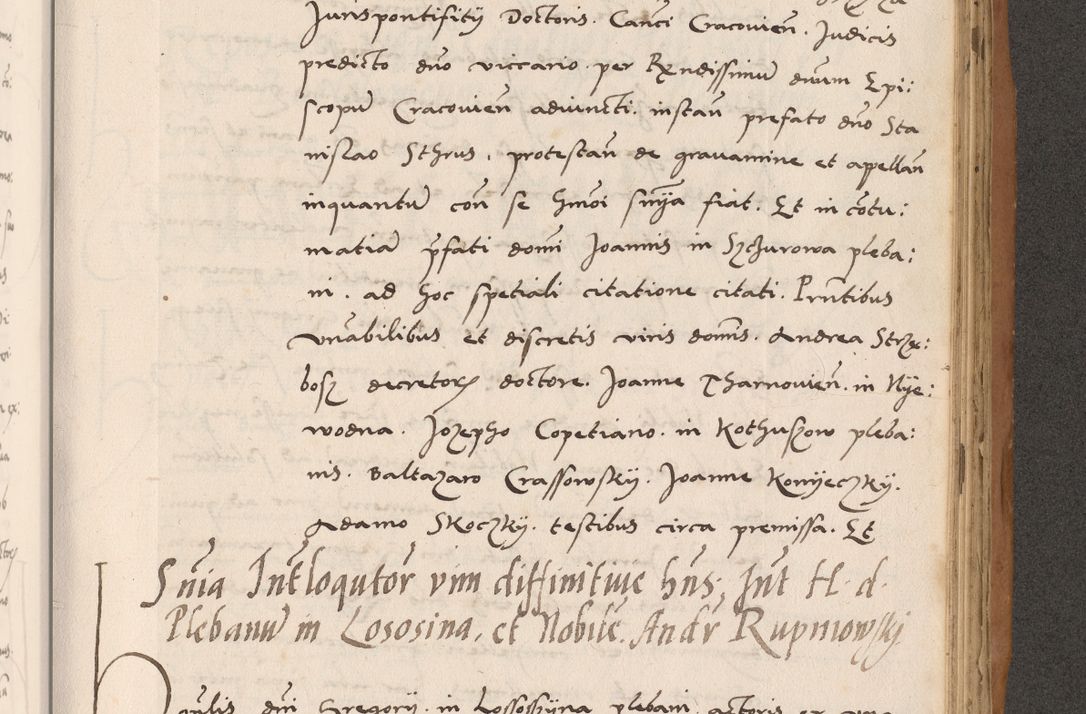 Jurispontifitÿ Doctoris. Canci Cracovieñ. Judicis
predicto dno viccario per Rxndissimu divum Epi:
scopu Cracovieñ adiuncti. instan prefato dno Sta
nislao Sthrus, protestan de gravamine et apellan
inquantu con se hmoi snia fiat. Et in cotu:
matia pfati domi Joannis in Szchurowa pleba:
ni. ad hoc spetiali citatione citati. Prntibus
vnabilibus et discretis viris domis. Andrea Strze:
bosz decretor doctore. Joanne Tharnovien. in Nye:
wodna. Jozepho Copetiano. in Kothuszow pleba:
nis. Baltazaro Crassowskÿ. Joanne Konyeczkÿ.
Adamo Skoczkÿ. testibus circa premissa. Et
Snia Intloqutor vim diffinitive hns, Int H. d.
Plebanu in Lososina, et Nobile. Andr Rupniowskj
dni Gregorii in Lossoshyna plebani actoris ex vna